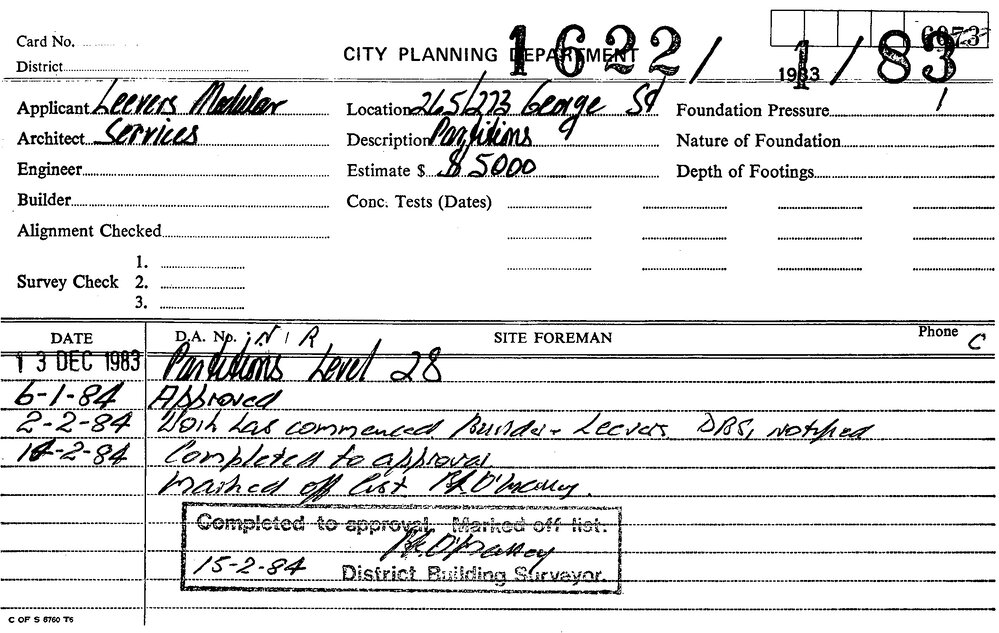 6073
Card No.
CITY PLANNING DEPARTMENT 1622/ 1/83
District
1983
Applicant Leevers Modular Location 265/273 George St Foundation Pressure
Architect Services Description Partitions Nature of Foundation
Engineer Estimate $ $5000 Depth of Footings
Builder Conc. Tests (Dates)
Alignment Checked
1.
Survey Check 2.
3.
DATE D.A. No. N R SITE FOREMAN Phone C
13 DEC 1983 Partitions Level 28
6-1-84 Approved
2-2-84 Work has commenced Builder - Leevers DBS, notified
14-2-84 Completed to approval
Marked off list
Completed to approval. Marked off list.
15-2-84 District Building Surveyor.
C OF S 6760 T6